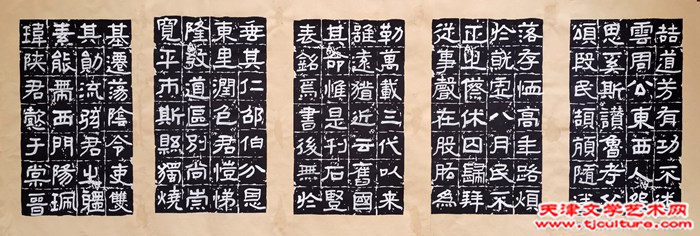 喆遺芳有功不
雲周公東西人怨
思奚斯讚魯考父
頌殷民頡頏隨送
落存恤高年路煩
於就虛八月民不
正之祭休囚歸拜
從事聲在股肱為
勒萬載三代以來
雖遠猶近云舊國
其命惟是刊石豎
表銘焉書後無於
垂其仁邵伯分恩
東里潤色君愷悌
隆教道區別尚崇
寬平市斯縣獨燒
基遷蕩陰令吏雙
其勛流弦君之體
素能帶西門陽珮
瑋陝君懿于棠晉
天津文学艺术网
www.tjculture.com